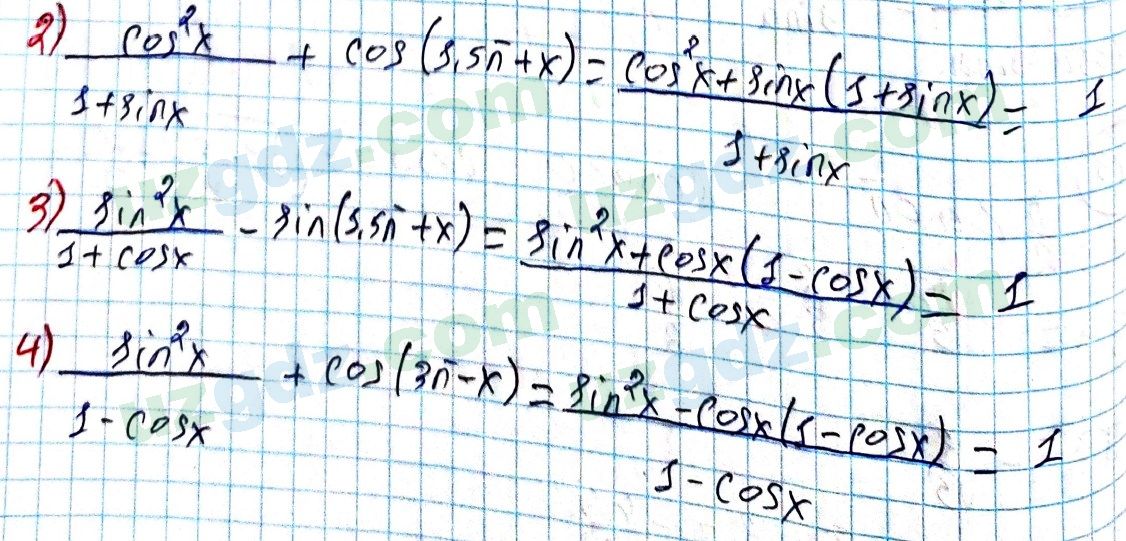 2) cos²x / 1+sinx + cos(1,5π+x) = cos²x+sinx(1+sinx) / 1+sinx = 1
3) sin²x / 1+cosx - sin(1,5π+x) = sin²x+cosx(1-cosx) / 1+cosx = 1
4) sin²x / 1-cosx + cos(3π-x) = sin²x-cosx(1-cosx) / 1-cosx = 1
uzgdz.com
uzgdz.com
uzgdz.com
uzgdz.com